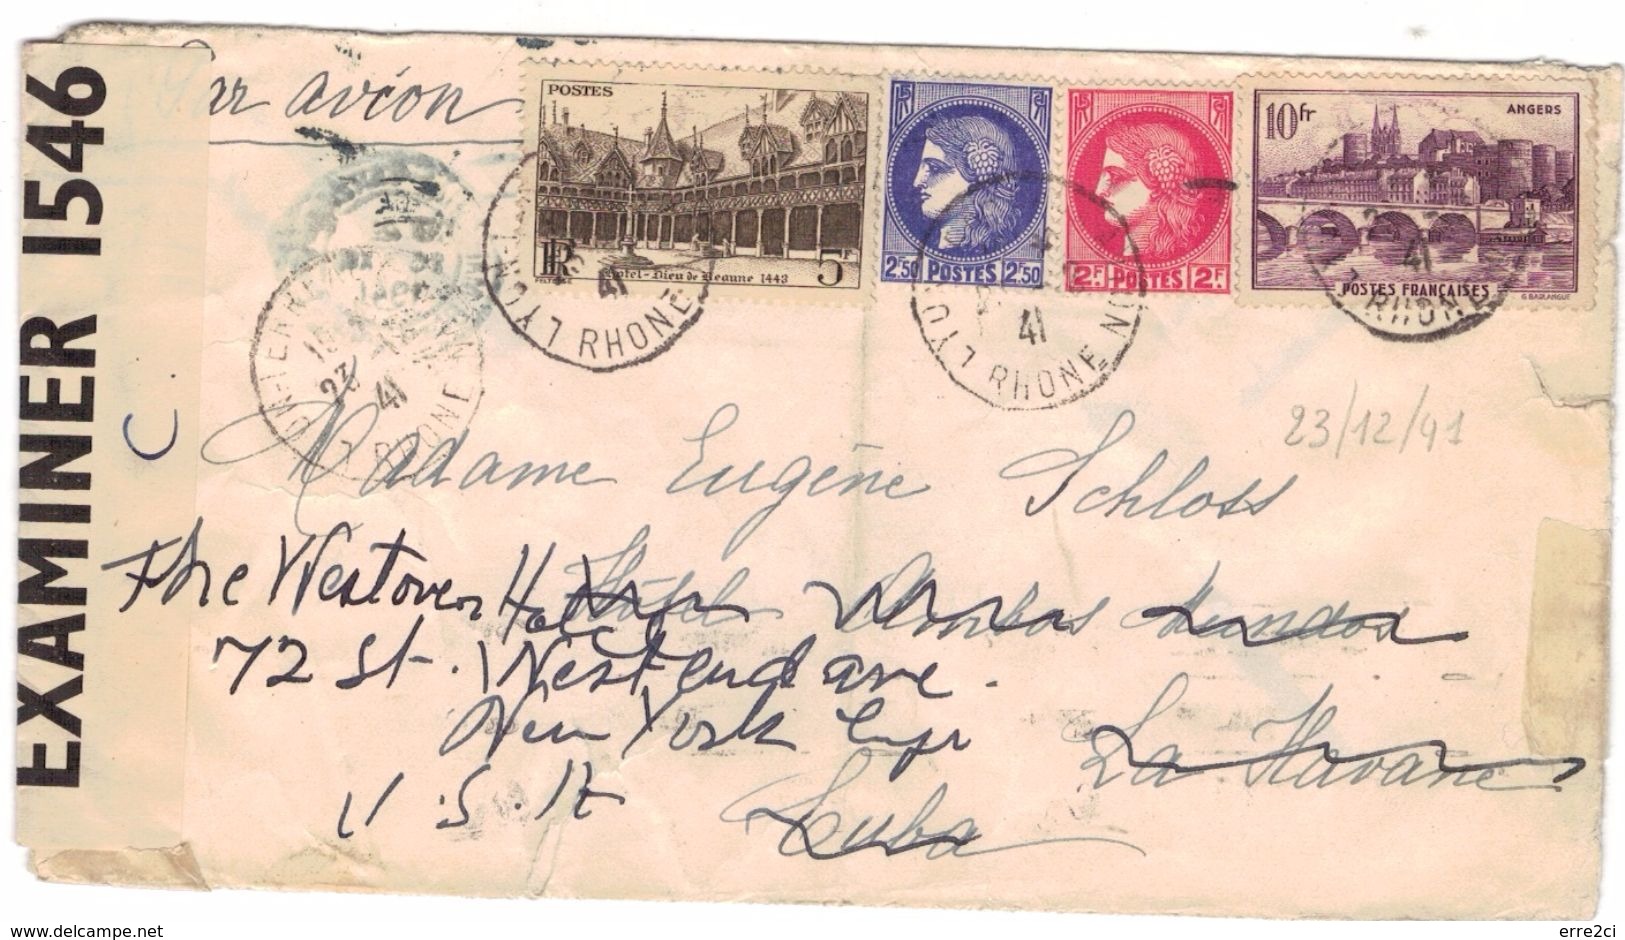 EXAMINER 1546
C.
Par avion
POSTES
RF
Hôtel-Dieu de Beaune 1443
5F
2F50 POSTES 2F50
2F POSTES 2F
10fr
ANGERS
POSTES FRANÇAISES
G. BARLANGUE
23
41
RHONE
41
LYON RHONE
41
LYON RHONE
41
RHONE
23/12/41
Madame Eugène Schloss
Hôtel Ambos Mundos
La Havane
Cuba
The Westover Hotel
72 St. West end ave.
New York City
U.S.A
www.delcampe.net
erre2ci